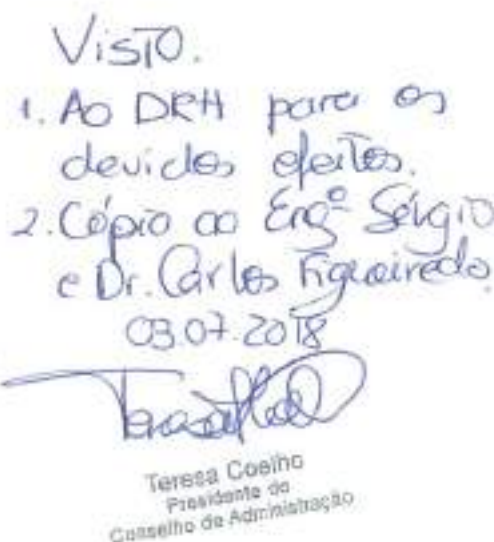 Visto.
1. Ao DRH para os
devidos efeitos.
2. Cópia ao Engº Sérgio
e Dr. Carlos Figueiredo.
03.07.2018
Teresa Coelho
Presidente do
Conselho de Administração